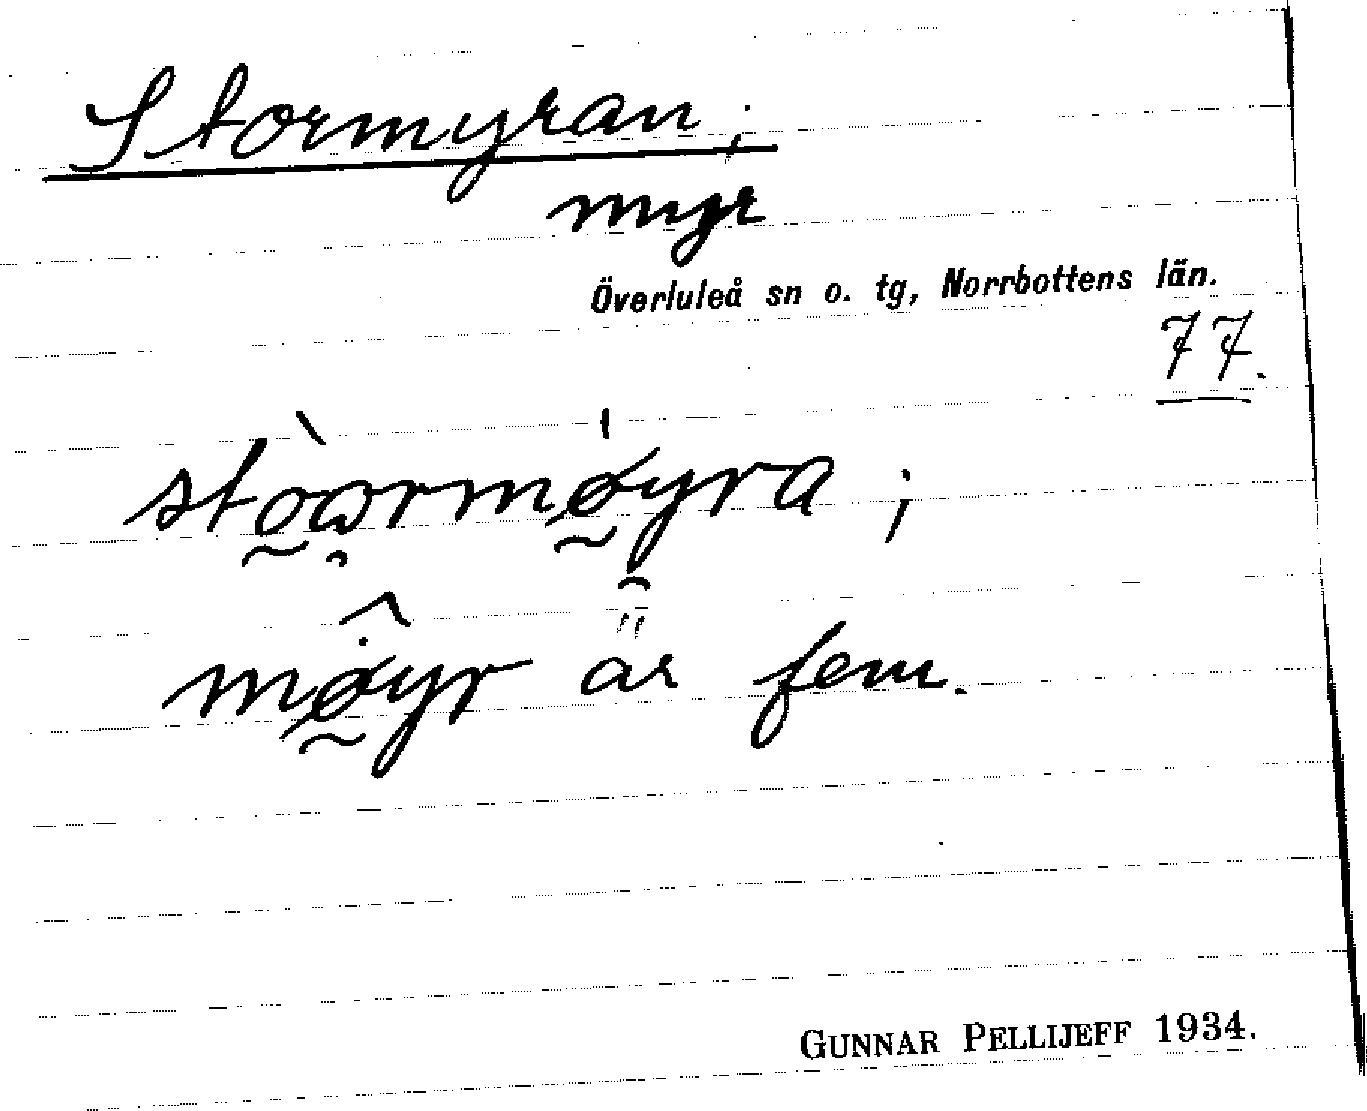 Stormyran;
myr
Överluleå sn o. tg, Norrbottens län.
77.
stòωrmøyra;
møyr är fem.
GUNNAR PELLIJEFF 1934.